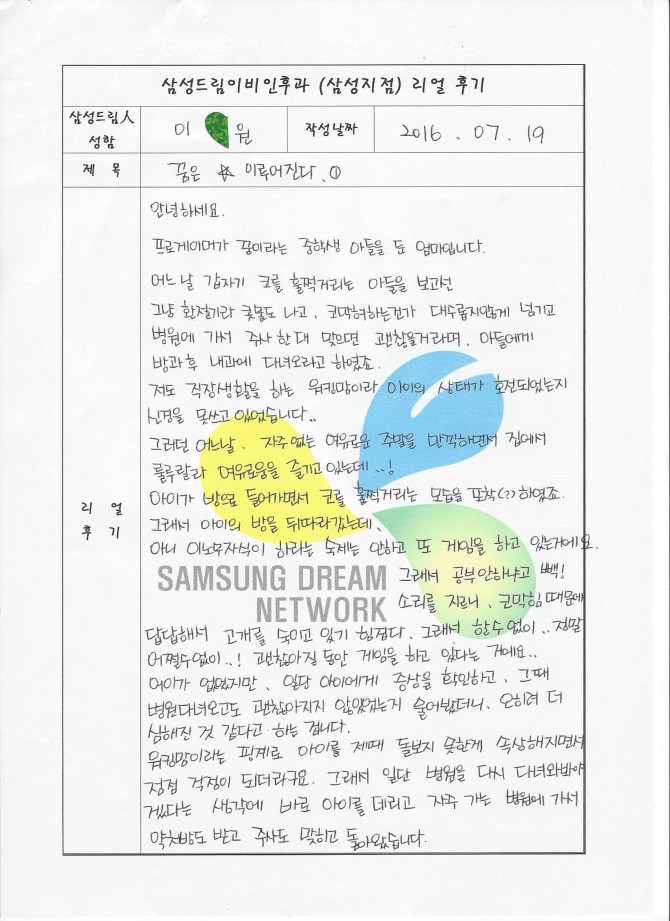 삼성드림이비인후과 (삼성지점) 리얼 후기
삼성드림人 성함
이 원
작성날짜
2016 . 07. 19
제 목
꿈은 ☆ 이루어진다. ①
리 얼 후 기
안녕하세요.
프로게이머가 꿈이라는 중학생 아들을 둔 엄마입니다.
어느날 갑자기 코를 훌쩍거리는 아들을 보고선
그냥 환절기라 콧물도 나고, 코막혀하는건가 대수롭지않게 넘기고
병원에 가서 주사 한대 맞으면 괜찮을거라며, 아들에게
방과후 내과에 다녀오라고 하였죠.
저도 직장생활을 하는 워킹맘이라 아이의 상태가 호전되었는지
신경을 못쓰고 있었습니다..
그러던 어느날. 자주없는 여유로운 주말을 만끽하면서 집에서
룰루랄라 여유로움을 즐기고 있는데..!
아이가 방으로 들어가면서 코를 훌쩍거리는 모습을 포착(?) 하였죠.
그래서 아이의 방을 뒤따라갔는데,
아니 이노무자식이 하라는 숙제는 안하고 또 게임을 하고 있는거에요.
그래서 공부안하냐고 빽!
소리를 지르니, 코막힘 때문에
SAMSUNG DREAM
NETWORK
답답해서 고개를 숙이고 있기 힘접다. 그래서 할수없이.. 정말
어쩔수없이..! 괜찮아질 동안 게임을 하고 있다는 거에요..
어이가 없었지만, 일단 아이에게 증상을 확인하고, 그때
병원다녀오고도 괜찮아지지 않았었는지 물어봤더니, 오히려 더
심해진 것 같다고 하는 겁니다.
워킹맘이라는 핑계로 아이를 제때 돌보지 못한게 속상해지면서
점점 걱정이 되더라구요. 그래서 일단 병원을 다시 다녀와봐야
겠다는 생각에 바로 아이를 데리고 자주 가는 병원에 가서
약처방도 받고 주사도 맞히고 돌아왔습니다.